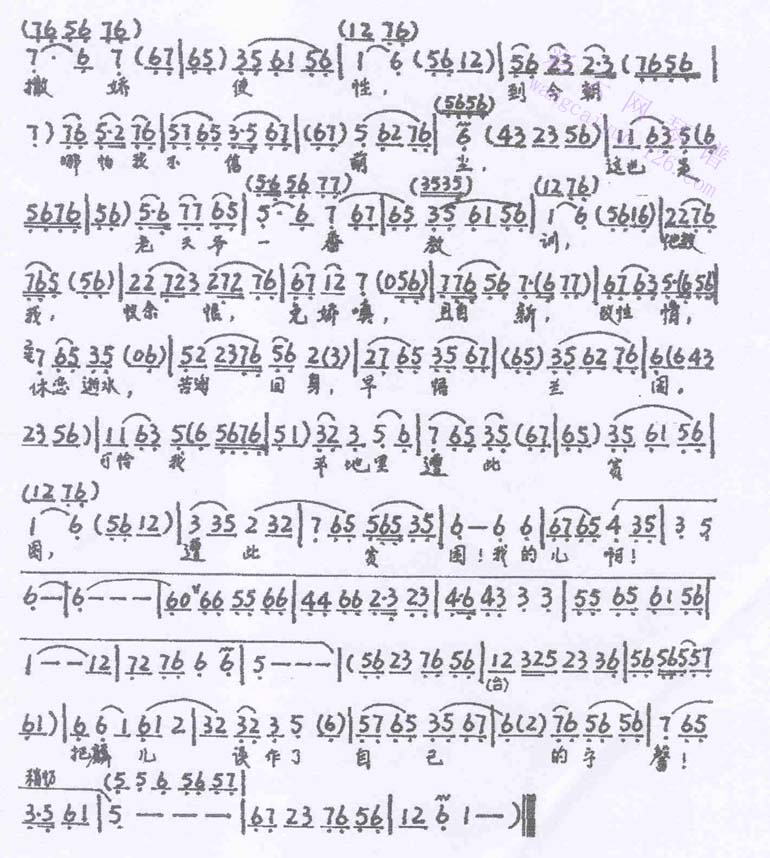 (76 56 76) (12 76)
7· 6 7 (67|65) 35 61 56|1 6 (56 12)|56 23 2·3 (7656|
撒 娇 使 性, 到 今 朝
(5656)
7) 76 5·2 76|57 65 3·5 67|(67) 5 62 76|6 (43 23 56)|11 63 5(6
哪 怕 我 不 信 前 尘, 这也 是
(56 56 77) (3535) (12 76)
5676|56) 5·6 77 65|5· 6 7 67|65 35 61 56|1 6 (5616)|2276
老 天 爷 一 番 教 训, 他教
765 (56)|22 723 272 76|67 12 7 (056)|776 56 7·(6 77)|67 63 5·(6 56|
我, 收余 恨, 免 娇 嗔, 且自 新, 改性 情,
7 65 35 (06)|52 2376 56 2(3)|27 65 35 67|(65) 35 62 76|6(6 43
休恋 逝水, 苦海 回 身, 早 悟 兰 因。
23 56)|11 63 5(6 5676|51) 32 3 5 6|7 65 35 (67|65) 35 61 56|
可怜 我 平 地 里 遭 此 贫
(12 76)
1 6 (56 12)|3 35 2 32|7 65 565 35|6 — 6 6|6765 4 35|3 5
困, 遭 此 贫 困! 我 的 儿 啊!
6 —|6 — — —|60 66 55 66|44 66 2·3 23|4·6 43 3 3|55 65 61 56|
1 — — 12|72 76 6 6|5 — — —|(56 23 76 56|12 325 23 36|5656557
(台)
61)|6 6 1 61 2|32 32 3 5 (6)|57 65 35 67|6(2) 76 56 56|7 65
把麟 儿 误 作 了 自 己 的 宁 馨!
(5 5 6 56 57|
3·5 61|5 — — —|67 23 76 56|12 6 1 —)‖